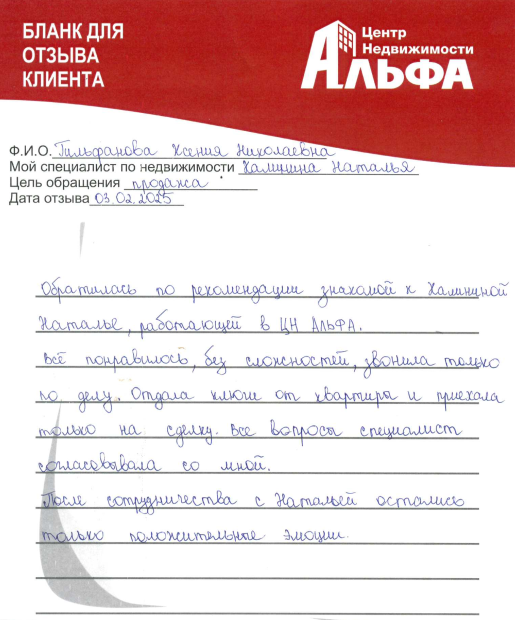 БЛАНК ДЛЯ
ОТЗЫВА
КЛИЕНТА
Центр
Недвижимости
АЛЬФА
Ф.И.О. Гильфанова Ксения Николаевна
Мой специалист по недвижимости Калинина Наталья
Цель обращения продажа
Дата отзыва 03.02.2025
Обратилась по рекомендации знакомой к Калининой
Наталье, работающей в ЦН АЛЬФА.
Всё понравилось, без сложностей, звонила только
по делу. Отдала ключи от квартиры и приехала
только на сделку. Все вопросы специалист
согласовывала со мной.
После сотрудничества с Натальей остались
только положительные эмоции.